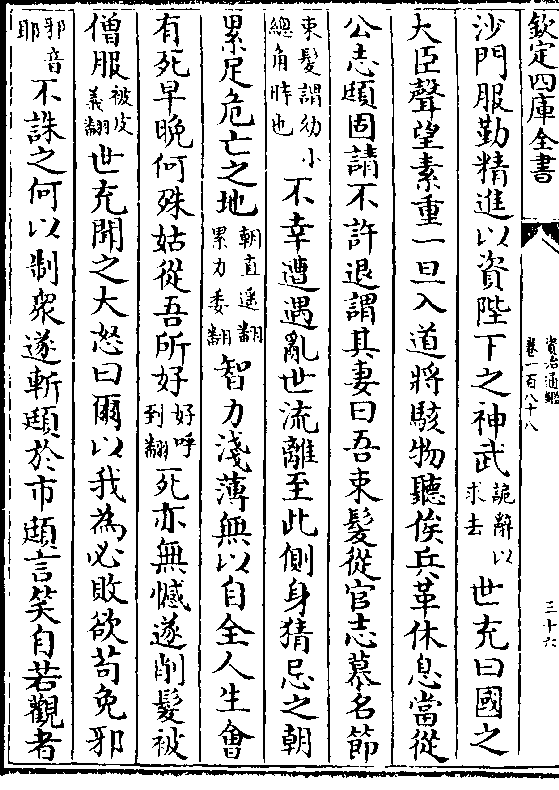 欽定四庫全書
資治通鑑
卷一百八十八
三十六
沙門服勤精進以資陛下之神武詭辭以求去世充曰國之
大臣聲望素重一旦入道將駭物聽俟兵革休息當從
公志頲固請不許退謂其妻曰吾束髮從官志慕名節
束髮謂幼小總角時也不幸遭遇亂世流離至此側身猜忌之朝
累足危亡之地朝直遥翻累力委翻智力淺薄無以自全人生會
有死早晚何殊姑從吾所好好呼到翻死亦無憾遂削髮被
僧服被皮義翻世充聞之大怒曰爾以我為必敗欲苟免邪
邪音耶不誅之何以制衆遂斬頲於市頲言笑自若觀者